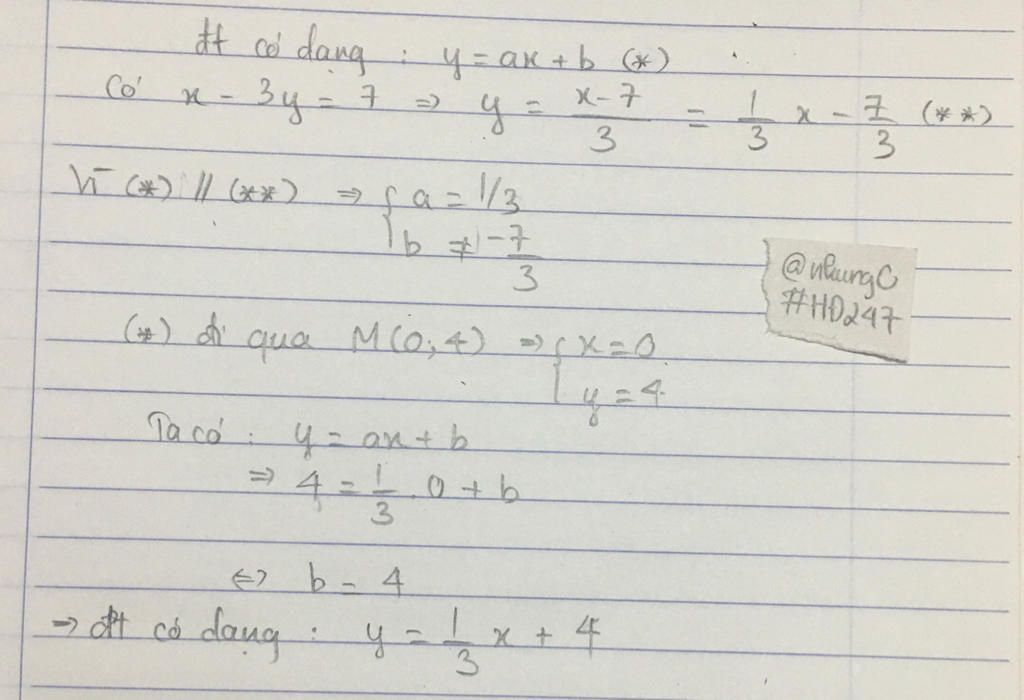 đt có dạng : y = ax + b (*)
Có x - 3y = 7 => y = x-7/3 = 1/3 x - 7/3 (**)
Vì (*) // (**) => { a = 1/3
b ≠ -7/3
@nhungC
#HD247
(*) đi qua M(0;4) => { x = 0
y = 4
Ta có : y = ax + b
=> 4 = 1/3 . 0 + b
<=> b = 4
→ đt có dạng : y = 1/3 x + 4